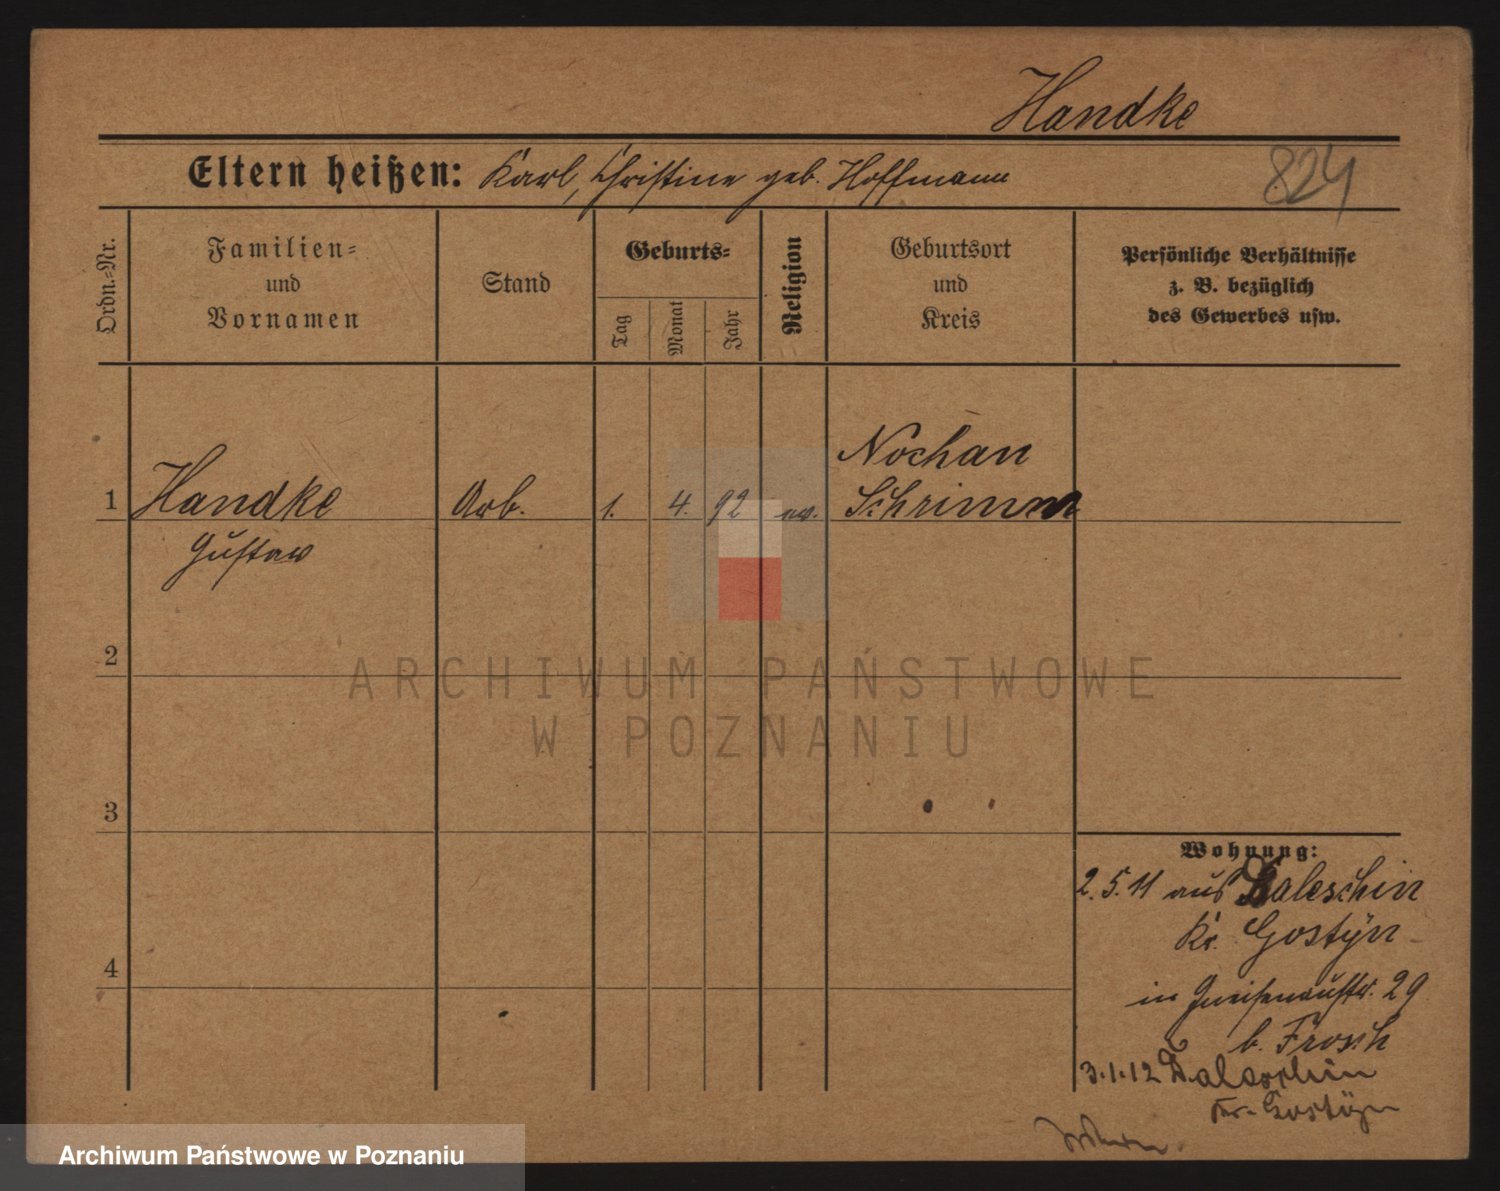 Handke
824
Eltern heißen: Karl, Christine geb. Hoffmann
Ordn.-Nr.
Familien-
und
Vornamen
Stand
Geburts-
Tag
Monat
Jahr
Religion
Geburtsort
und
Kreis
Persönliche Verhältnisse
z. B. bezüglich
des Gewerbes usw.
1
Handke
Gustav
Arb.
1.
4.
92
ev.
Nochan
Schrimm
2
3
4
Wohnung:
2.5.11 aus Daleschin
Kr. Gostÿn
in Gneisenaustr. 29
b. Frosch
3.1.12 Daleschin
Kr. Gostÿn
ARCHIWUM PAŃSTWOWE
W POZNANIU
Archiwum Państwowe w Poznaniu